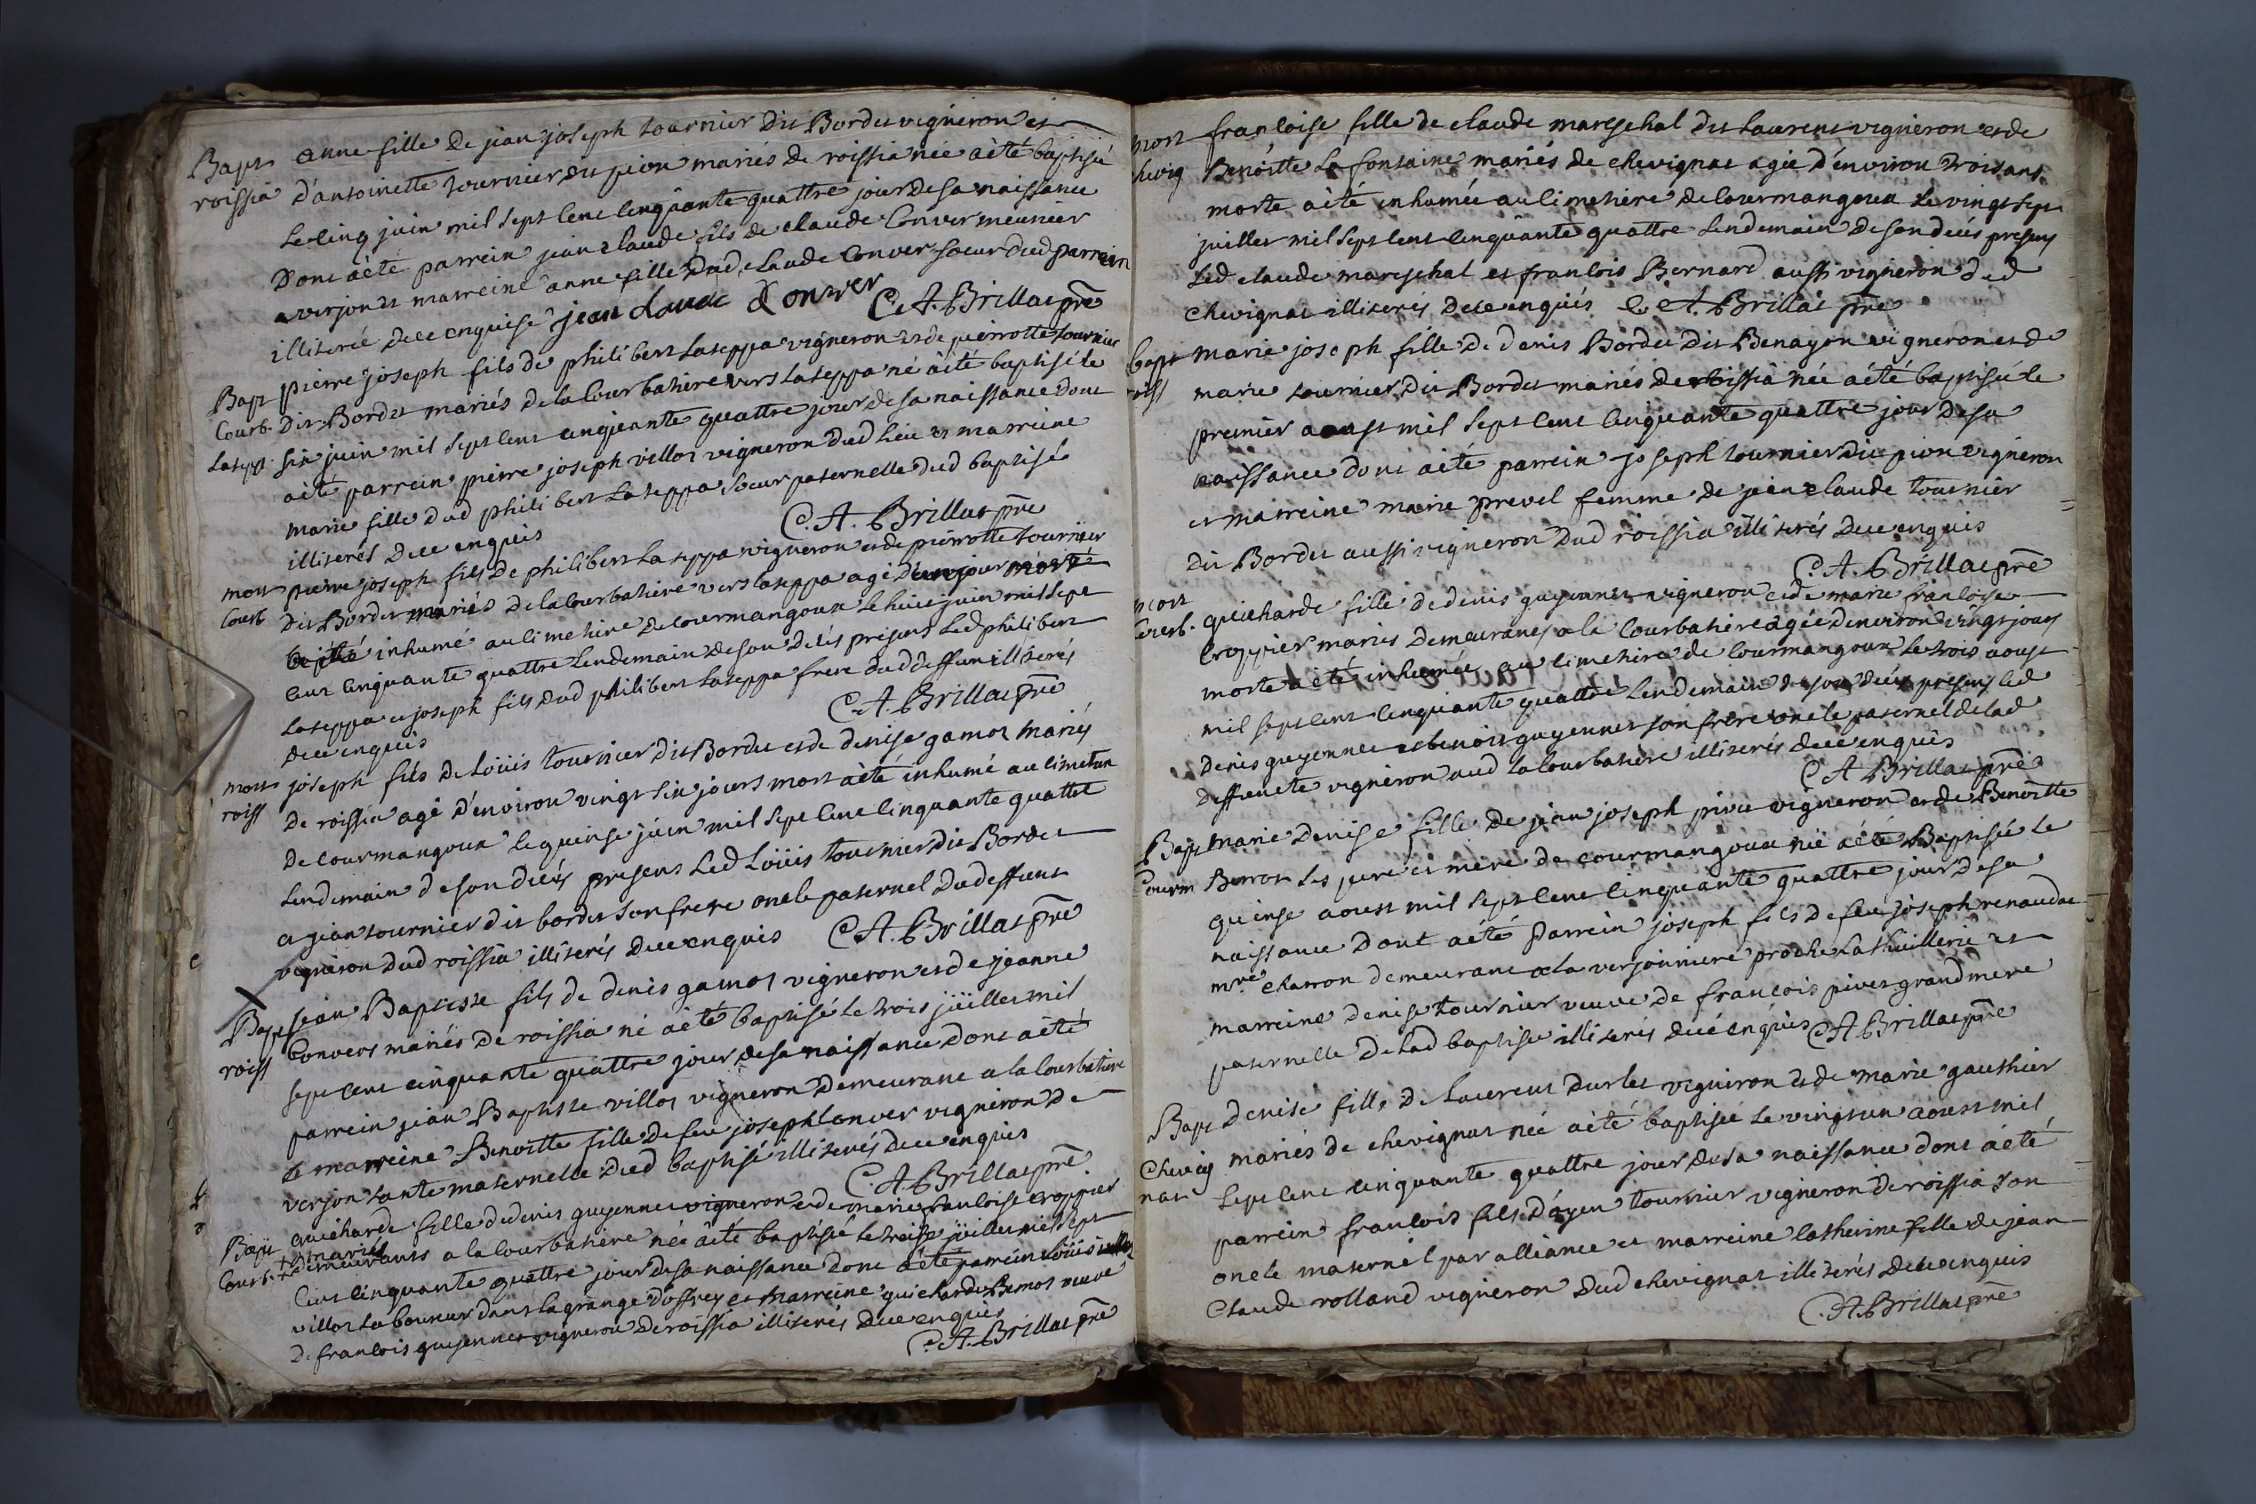 Bapt anne fille de jean joseph tournier dit Bordet vigneron et
roissia d'antoinette tournier dit pion mariés de roissia née a èté baptisée
le cinq juin mil sept cent cinquante quattre jour de sa naissance
Dont a èté parrein jean claude fils de claude Conver meunier
a verjon et marreine anne fille dud claude Conver sœur dud parrein
illiterée de ce enquise jean claude Conver C.A. Brillat pre
Bapt pierre joseph fils de philibert Lateppa vigneron et de pierrotte tournier
Courb. Dit Bordet mariés de la Courbatiere vers Lateppa né a èté baptisé le
Latepp. six juin mil sept cent cinquante quattre jour de sa naissance dont
a èté parrein pierre joseph villot vigneron dud lieu et marreine
marie fille dud philibert Lateppa sœur paternelle dud baptisé
illiterés de ce enquis C.A. Brillat pre
mort pierre joseph fils de philibert Lateppa vigneron et de pierrotte tournier
Courb Dit Bordet mariés de la Courbatiere vers Lateppa agé d'un jour mort
a èté inhumé au cimetiere de Courmangoux le huit juin mil sept
cent cinquante quattre lendemain de son decés presens led philibert
Lateppa et joseph fils dud philibert Lateppa frere dud deffunt illiterés
de ce enquis C.A. Brillat pre
mort joseph fils de Loüis tournier dit Bordet et de denise gamot mariés
roiss de roissia agé d'environ vingt six jours mort a èté inhumé au cimetiere
de courmangoux le quinse juin mil sept cent cinquante quattre
Lendemain de son decés presens Led Loüis tournier dit Bordet
et jean tournier dit bordet son frere oncle paternel dud deffunt
vigneron dud roissia illiterés de ce enquis C.A. Brillat pre
Bapt jean Baptiste fils de denis gamot vigneron et de jeanne
roiss Convers mariés de roissia né a èté baptisé le trois jüillet mil
sept cent cinquante quattre jour de sa naissance dont a èté
parrein jean Baptiste villot vigneron demeurant a la Courbatiere
et marreine Benoitte fille de feu joseph Conver vigneron de
verjon tante maternelle dud baptisé illiterés de ce enquis
C.A. Brillat pre
Bapt guicharde fille de denis guyennet vigneron et de marie francoise croppier
+ mariés
Courb. + demeurants a la Courbatiere née a èté baptisée le treise jüillet mil sept
Cent cinquante quattre jour de sa naissance dont a èté parrein Loüis
villot Laboureur dans La grange d'offrey et marreine guicharde Bemot veuve
de francois guyennet vigneron de roissia illiterés de ce enquis
C.A. Brillat pre
mort francoise fille de claude mareschal dit Laurent vigneron et de
chevig Benoitte La fontaine mariés de chevignat agée d'environ trois ans
morte a été inhumée au cimetiere de Courmangoux le vingt sept
juillet mil sept cent cinquante quattre lendemain de son decés presens
Led claude mareschal et francois Bernard aussi vigneron dud
chevignat illiterés de ce enquis C.A. Brillat pre
bapt marie joseph fille de denis Bordet dit Benayon vigneron et de
roiss marie tournier dit Bordet mariés de roissia née a été baptisée le
premier aoust mil sept cent cinquante quattre jour de sa
naissance dont a èté parrein joseph tournier dit pion vigneron
et marreine marie prevel femme de jean claude tournier
dit Bordet aussi vigneron dud roissia illiterés de ce enquis
C.A. Brillat pre
mort guicharde fille de denis guyennet vigneron et de marie francoise
Courb. Croppier mariés demeurants a la Courbatiere agée d'environ vingt jours
morte a èté inhumée au cimetiere de Courmangoux le trois aoust
mil sept cent cinquante quattre Lendemain de son decés presens led
denis guyennet et benoit guyennet son frere oncle paternel de lad
deffuncte vigneron aud la Courbatiere illiterés de ce enquis
C.A. Brillat pre
Bapt marie denise fille de jean joseph pivet vigneron et de Benoitte
Courm Borron ses pere et mere de courmangoux née a èté Baptisée le
quinse aoust mil sept cent cinquante quattre jour de sa
naissance dont a èté parrein joseph fils de feu joseph renaudat
mre charron demeurant a la verjonniere proche La thuillerie et
marreine denise tournier veuve de francois pivet grand mere
paternelle de lad baptisée illiterés de ce enquis C.A. Brillat pre
Bapt denise fille de Laurent durlet vigneron et de marie gauthier
Chevig mariés de chevignat née a èté baptisée le vingt un aoust mil
nat sept cent cinquante quattre jour de sa naissance dont a èté
parrein francois fils d'ayen tournier vigneron de roissia son
oncle maternel par alliance et marreine Catherine fille de jean
Claude rolland vigneron dud chevignat illiterés de ce enquis
C.A. Brillat pre